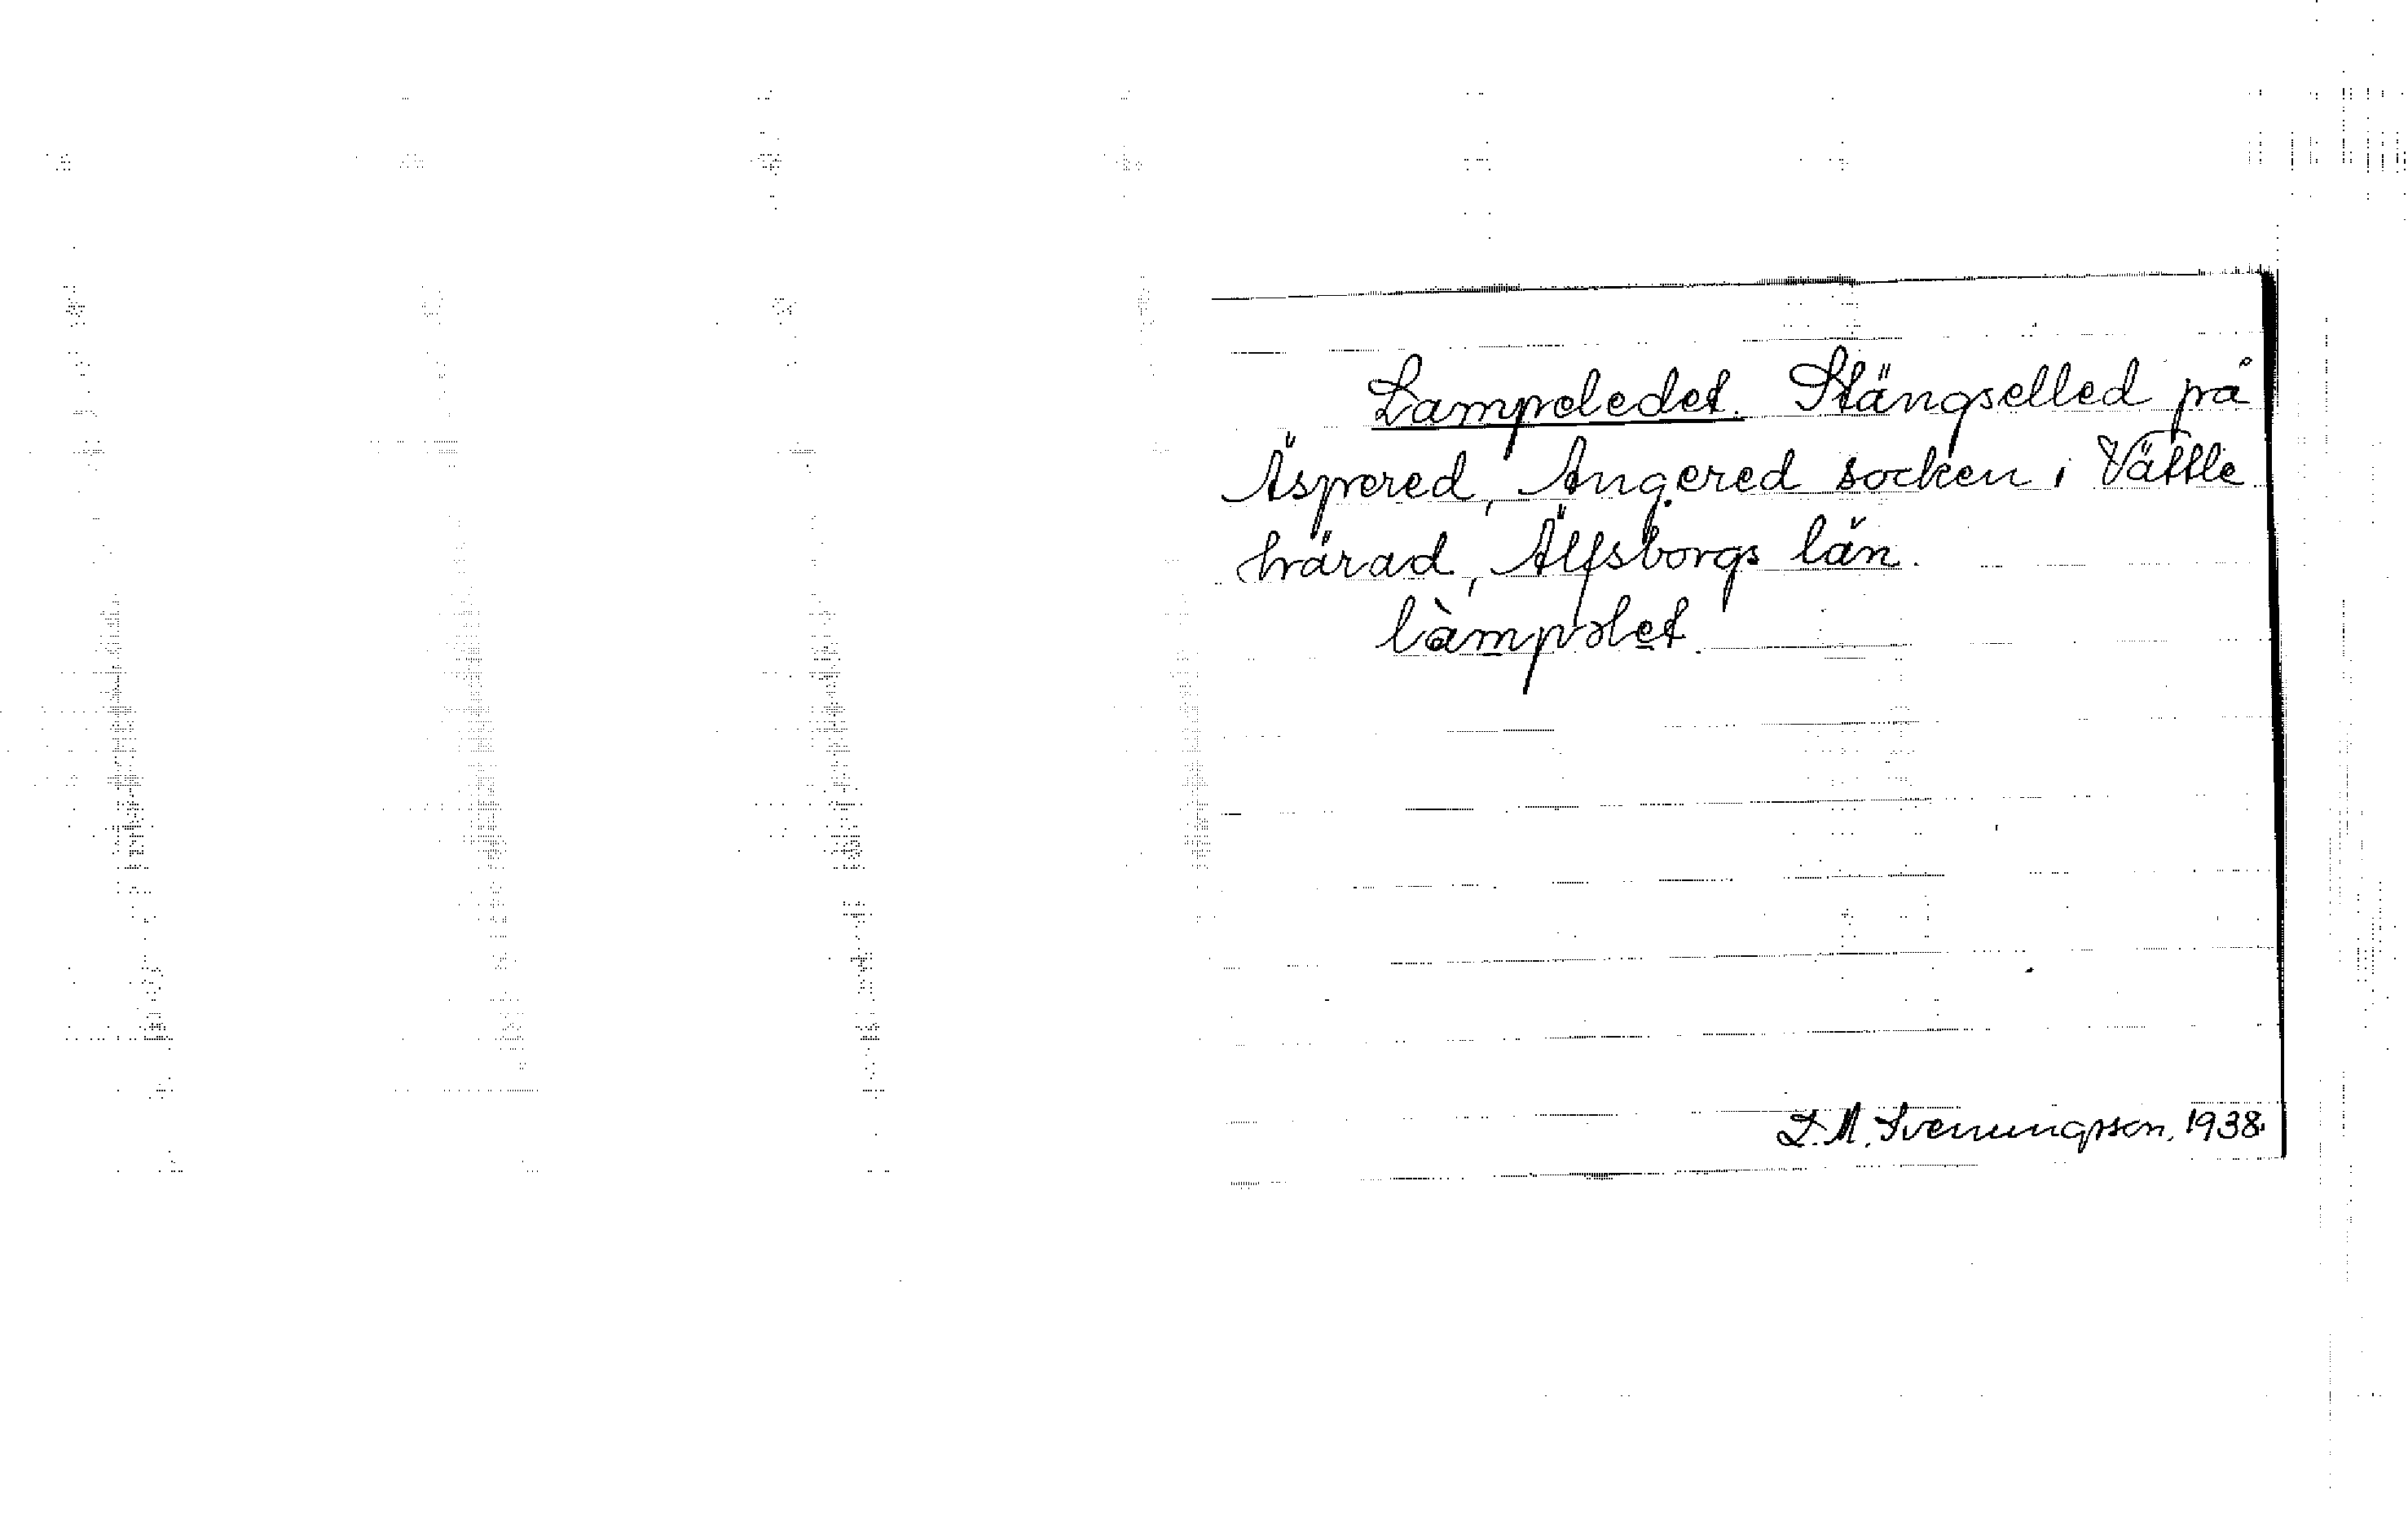 Lampeledet. Stängselled på
Äspered, Angered socken i Vättle
härad, Älfsborgs län.
làmpəlet.
D. M. Svenungsson, 1938.